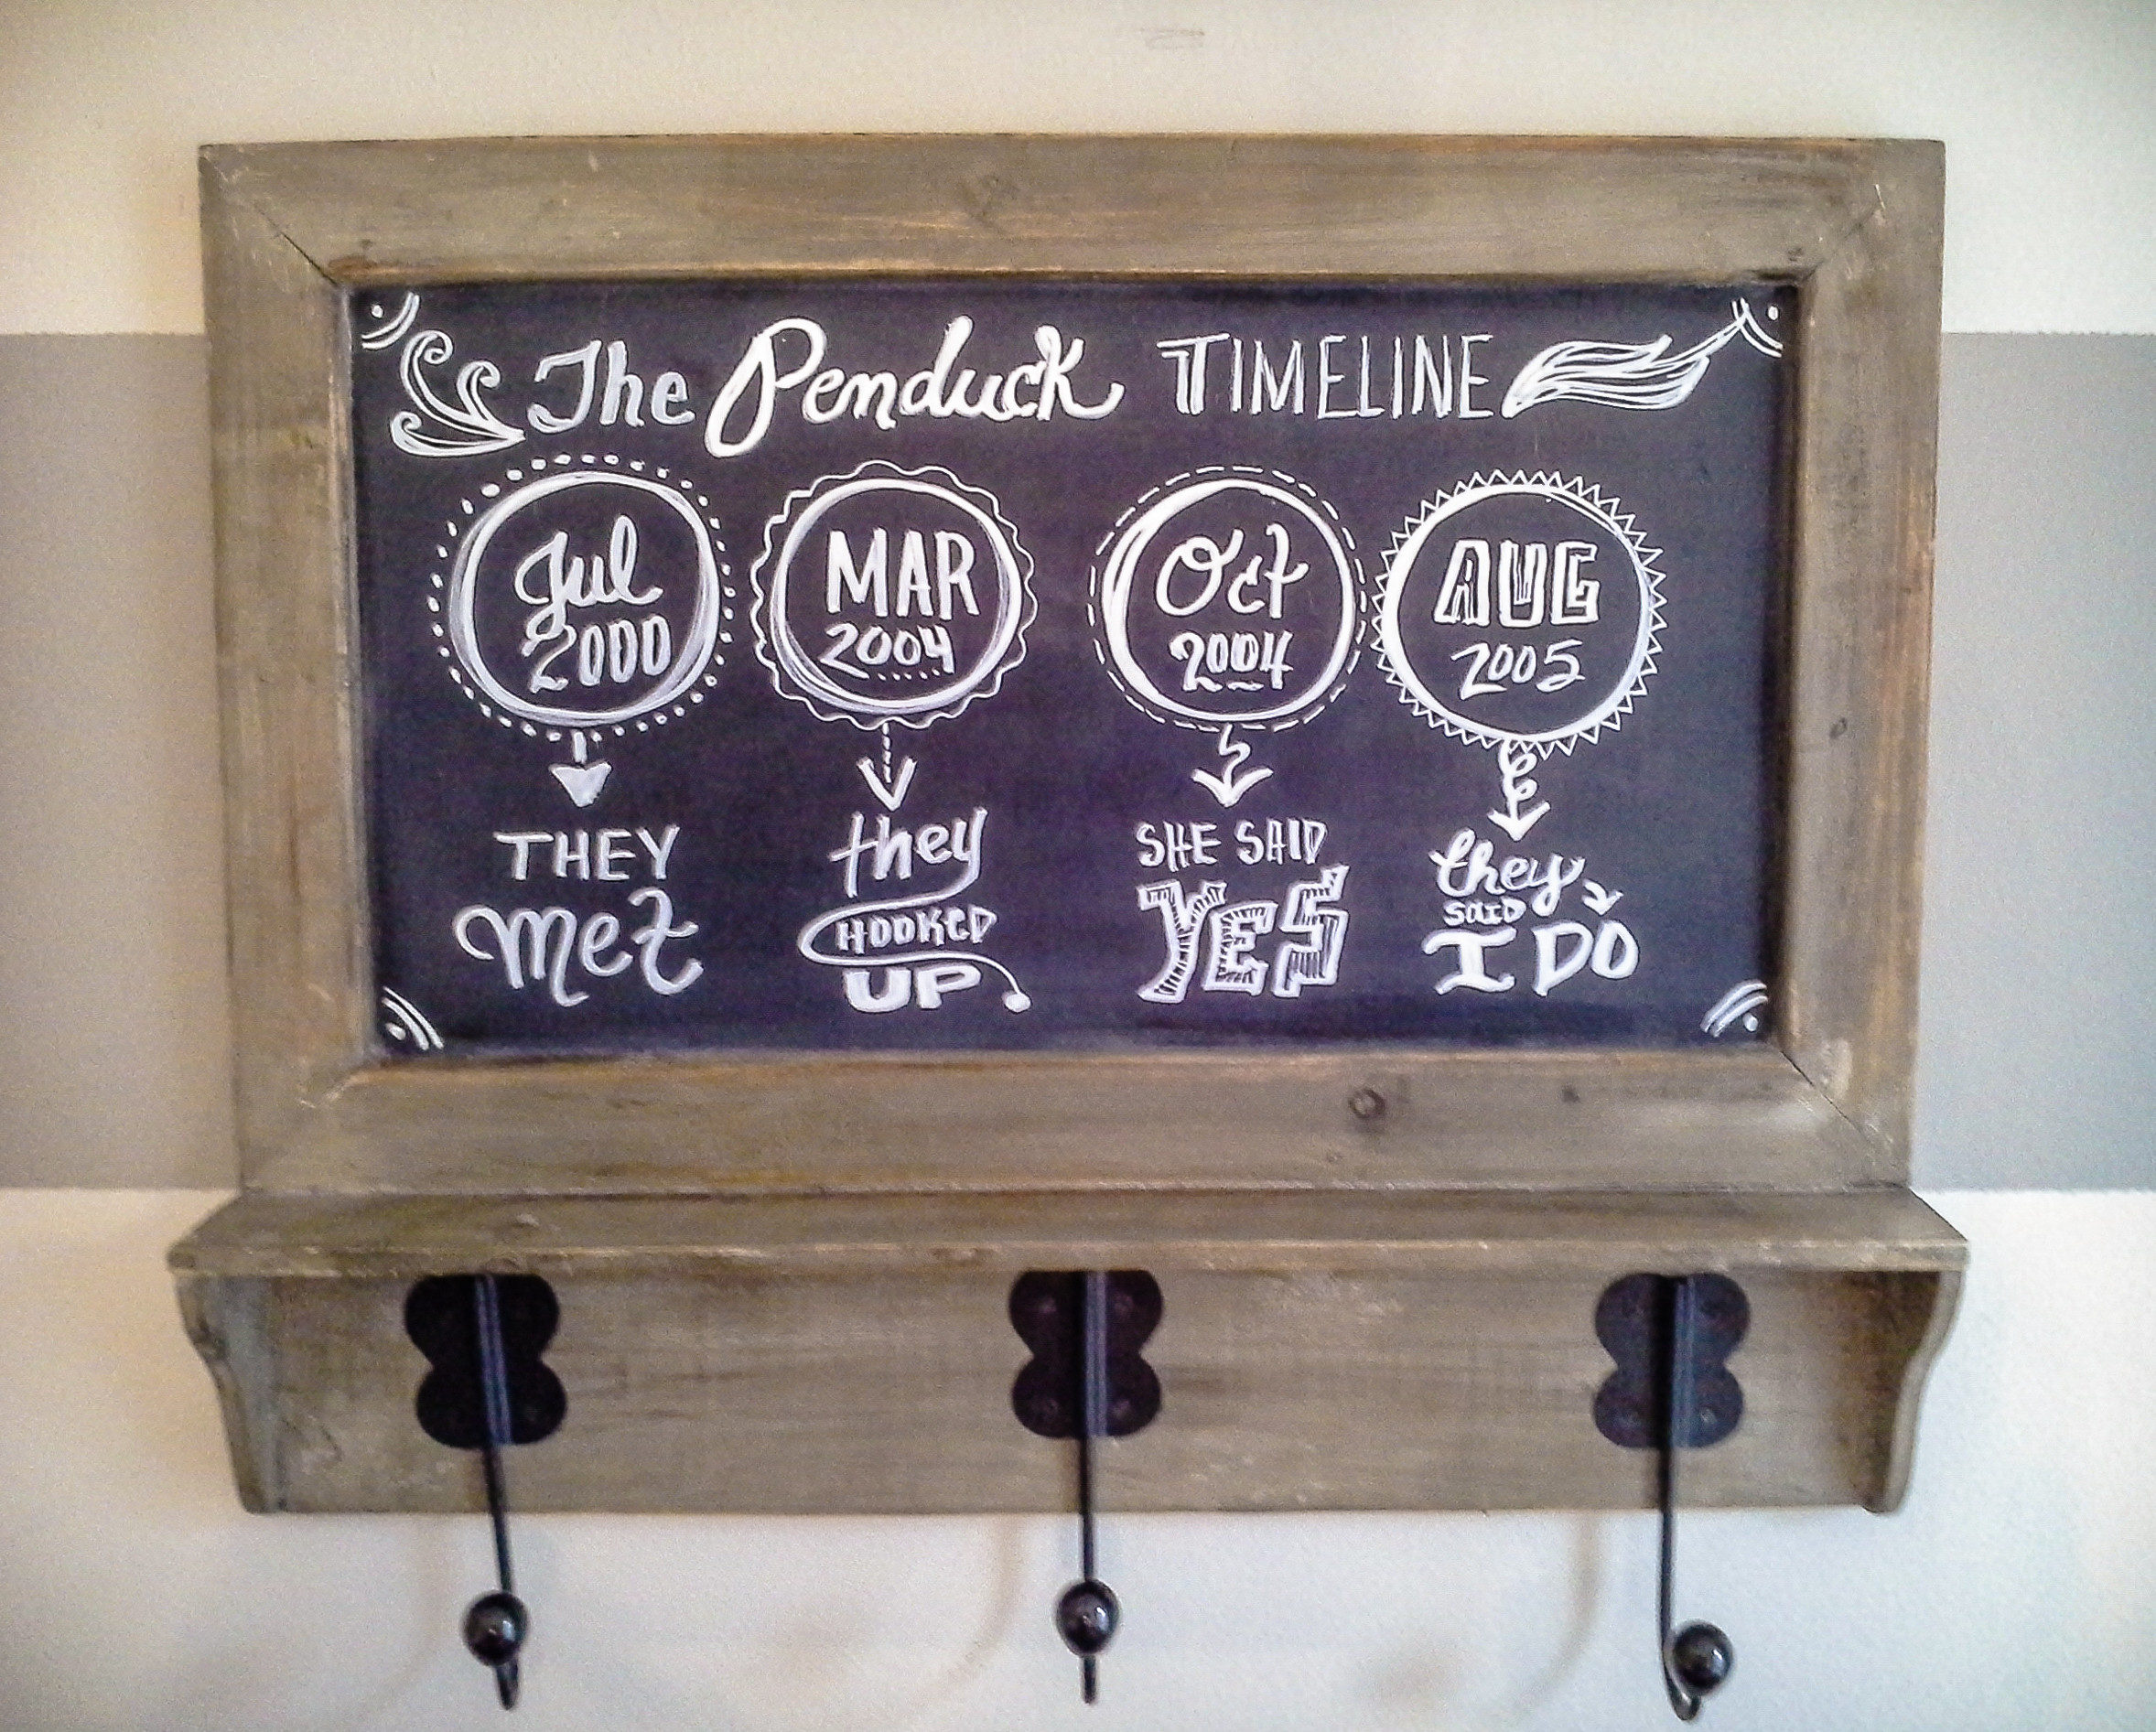 The Penduck TIMELINE
Jul
2000
THEY
met
MAR
2004
they
HOOKED
UP
Oct
2004
SHE SAID
YES
AUG
2005
they
said
I DO